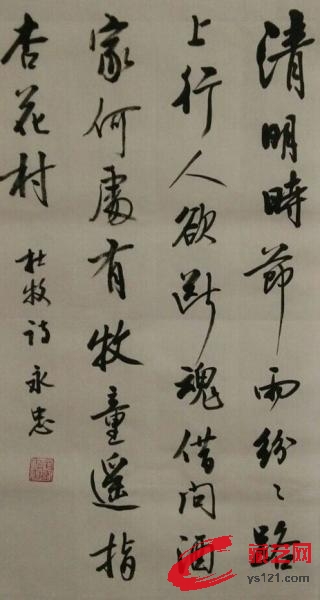 清明時節雨紛〻路
上行人欲断魂借问酒
家何處有牧童遥指
杏花村
杜牧诗永忠
藏艺网
ys121.com